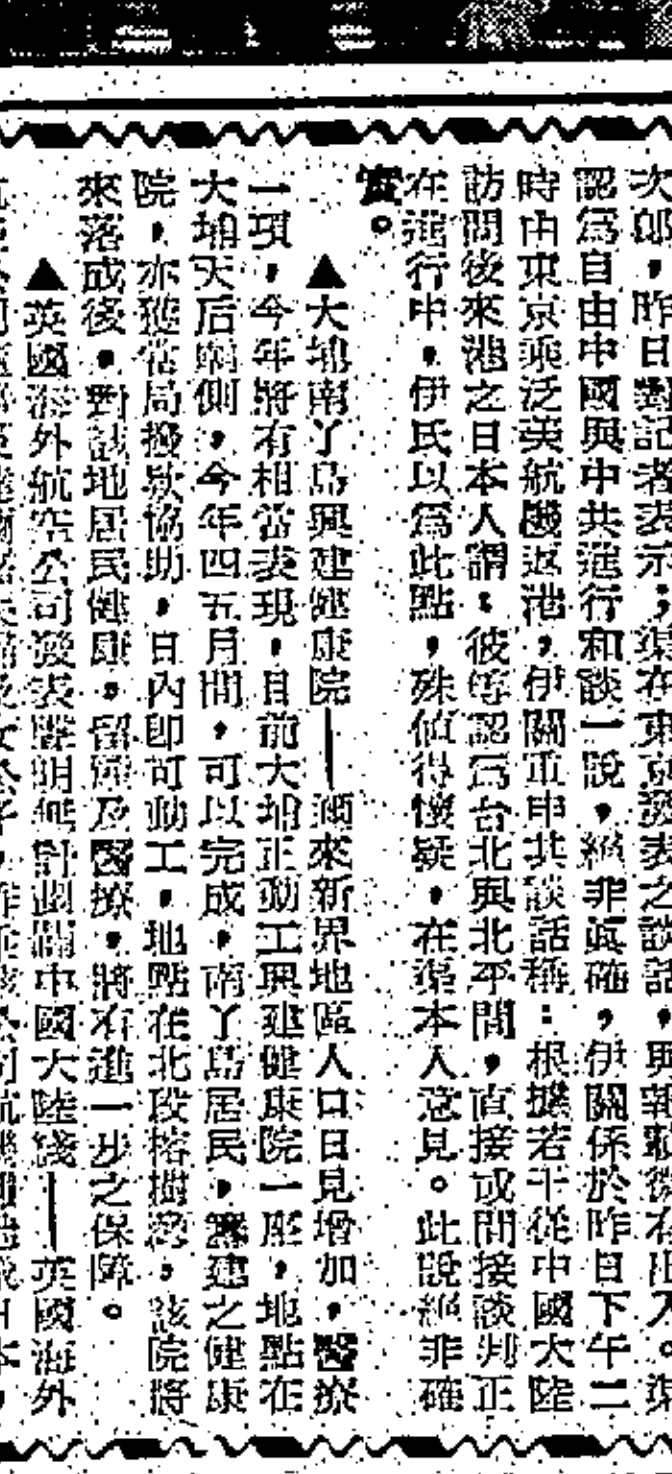 次郎，昨日對記者表示；渠在東京發表之談話，與報載微有出入。渠
認為自由中國與中共進行和談一說，絕非眞確，伊關係於昨日下午二
時由東京乘泛美航機返港，伊關重申其談話稱：根據若干從中國大陸
訪問後來港之日本人謂：彼等認爲台北與北平間，直接或間接談判正
在進行中，伊氏以爲此點，殊値得懷疑，在渠本人意見。此說絕非確
實。
▲大埔南丫島興建健康院——邇來新界地區人口日見增加，醫療
一項，今年將有相當表現，目前大埔正動工興建健康院一座，地點在
大埔天后廟側，今年四五月間，可以完成，南丫島居民，籌建之健康
院，亦獲當局撥欵協助，日內即可動工，地點在北段榕樹灣，該院將
來落成後，對該地居民健康，留產及醫療，將有進一步之保障。
▲英國海外航空公司發表聲明無計劃關中國大陸綫——英國海外